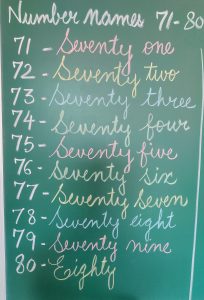 Number names 71-80
71 - Seventy one
72 - Seventy two
73 - Seventy three
74 - Seventy four
75 - Seventy five
76 - Seventy six
77 - Seventy Seven
78 - Seventy eight
79 - Seventy nine
80 - Eighty